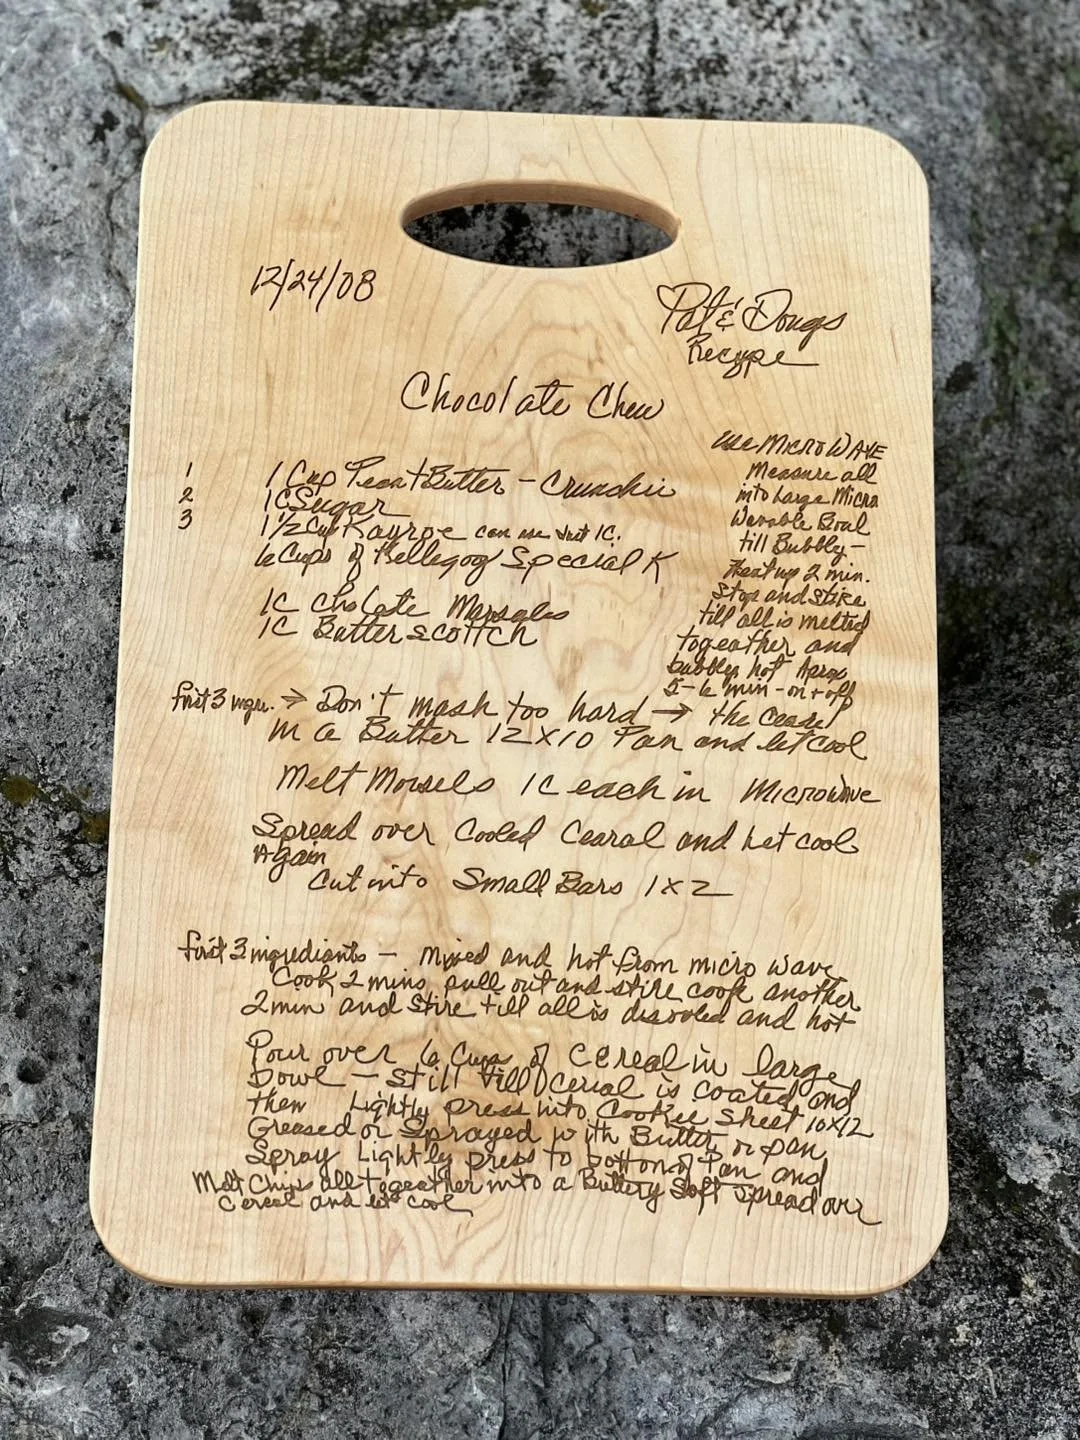 12/24/08
Pat & Dougs
Recype
Chocolate Chew
1 1 Cup Peant Butter - Crunchie
2 1C Sugar
3 1 1/2 Cup Kayroe can use Just 1C.
6 Cups of Kellegog Special K
1C Cholate Morsales
1C Butterscottch
use MicroWAVE
Measure all
into Large Micro
Wavable Boal
till Bubbly -
Heat up 2 min.
Stop and Stire
till all is melted
togeather and
bubbly hot Aprox
5-6 min - on + off
first 3 ingre. → Don't mash too hard → the Cearel
in a Butter 12x10 Pan and let Cool
Melt Morsels 1C each in Microwave
Spread over Cooled Cearal and Let Cool
Again
Cut into Small Bars 1x2
first 3 ingrediants - Mixed and hot from micro wave
Cook 2 mins pull out and stire cook another
2 min and Stire till all is and hot
Pour over 6 Cups of Cereal in large
Bowl - Still till cerial is coated and
then Lightly press into Cookee Sheet 10x12
Greased or Sprayed with Butter or pan
Spray Lightly press to botton of Pan and
Melt Chips all togeather into a Buttery Soft Spread over
Cereal and let Cool